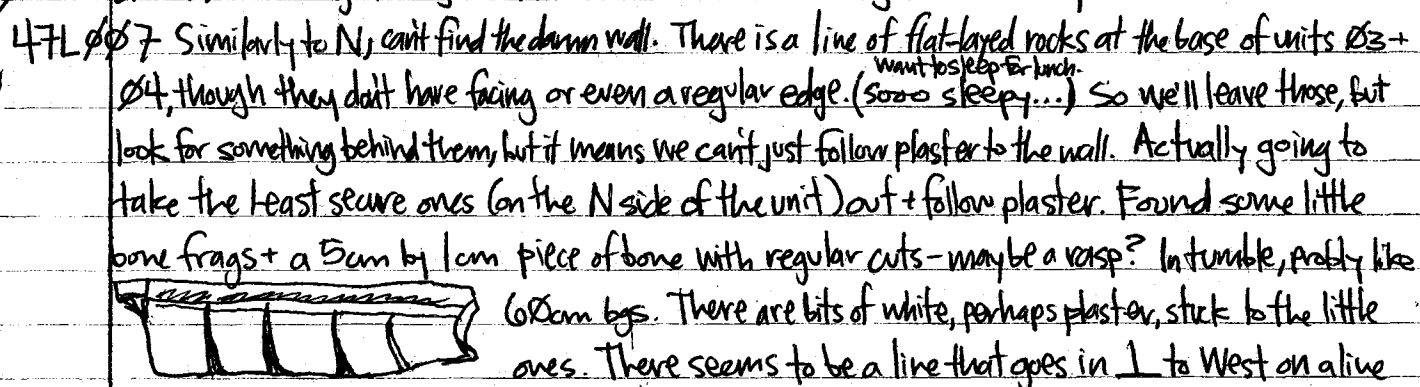 47LØØ7 Similarly to N, can't find the damn wall. There is a line of flat-layed rocks at the base of units Ø3+
want to sleep for lunch.
Ø4, though they don't have facing or even a regular edge. (sooo sleepy...) So we'll leave those, but
look for something behind them, but it means we can't just follow plaster to the wall. Actually going to
take the least secure ones (on the N side of the unit) out + follow plaster. Found some little
bone frags + a 5cm by 1cm piece of bone with regular cuts - maybe a rasp? In tumble, probly like
6Øcm bgs. There are bits of white, perhaps plaster, stuck to the little
ones. There seems to be a line that goes in ⊥ to West on a line